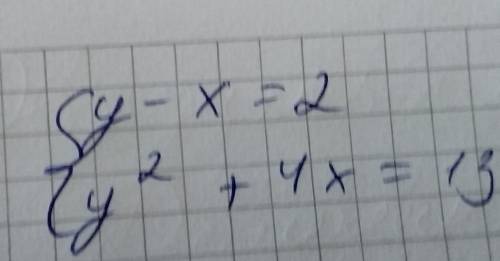 {y - x = 2
{y² + 4x = 13